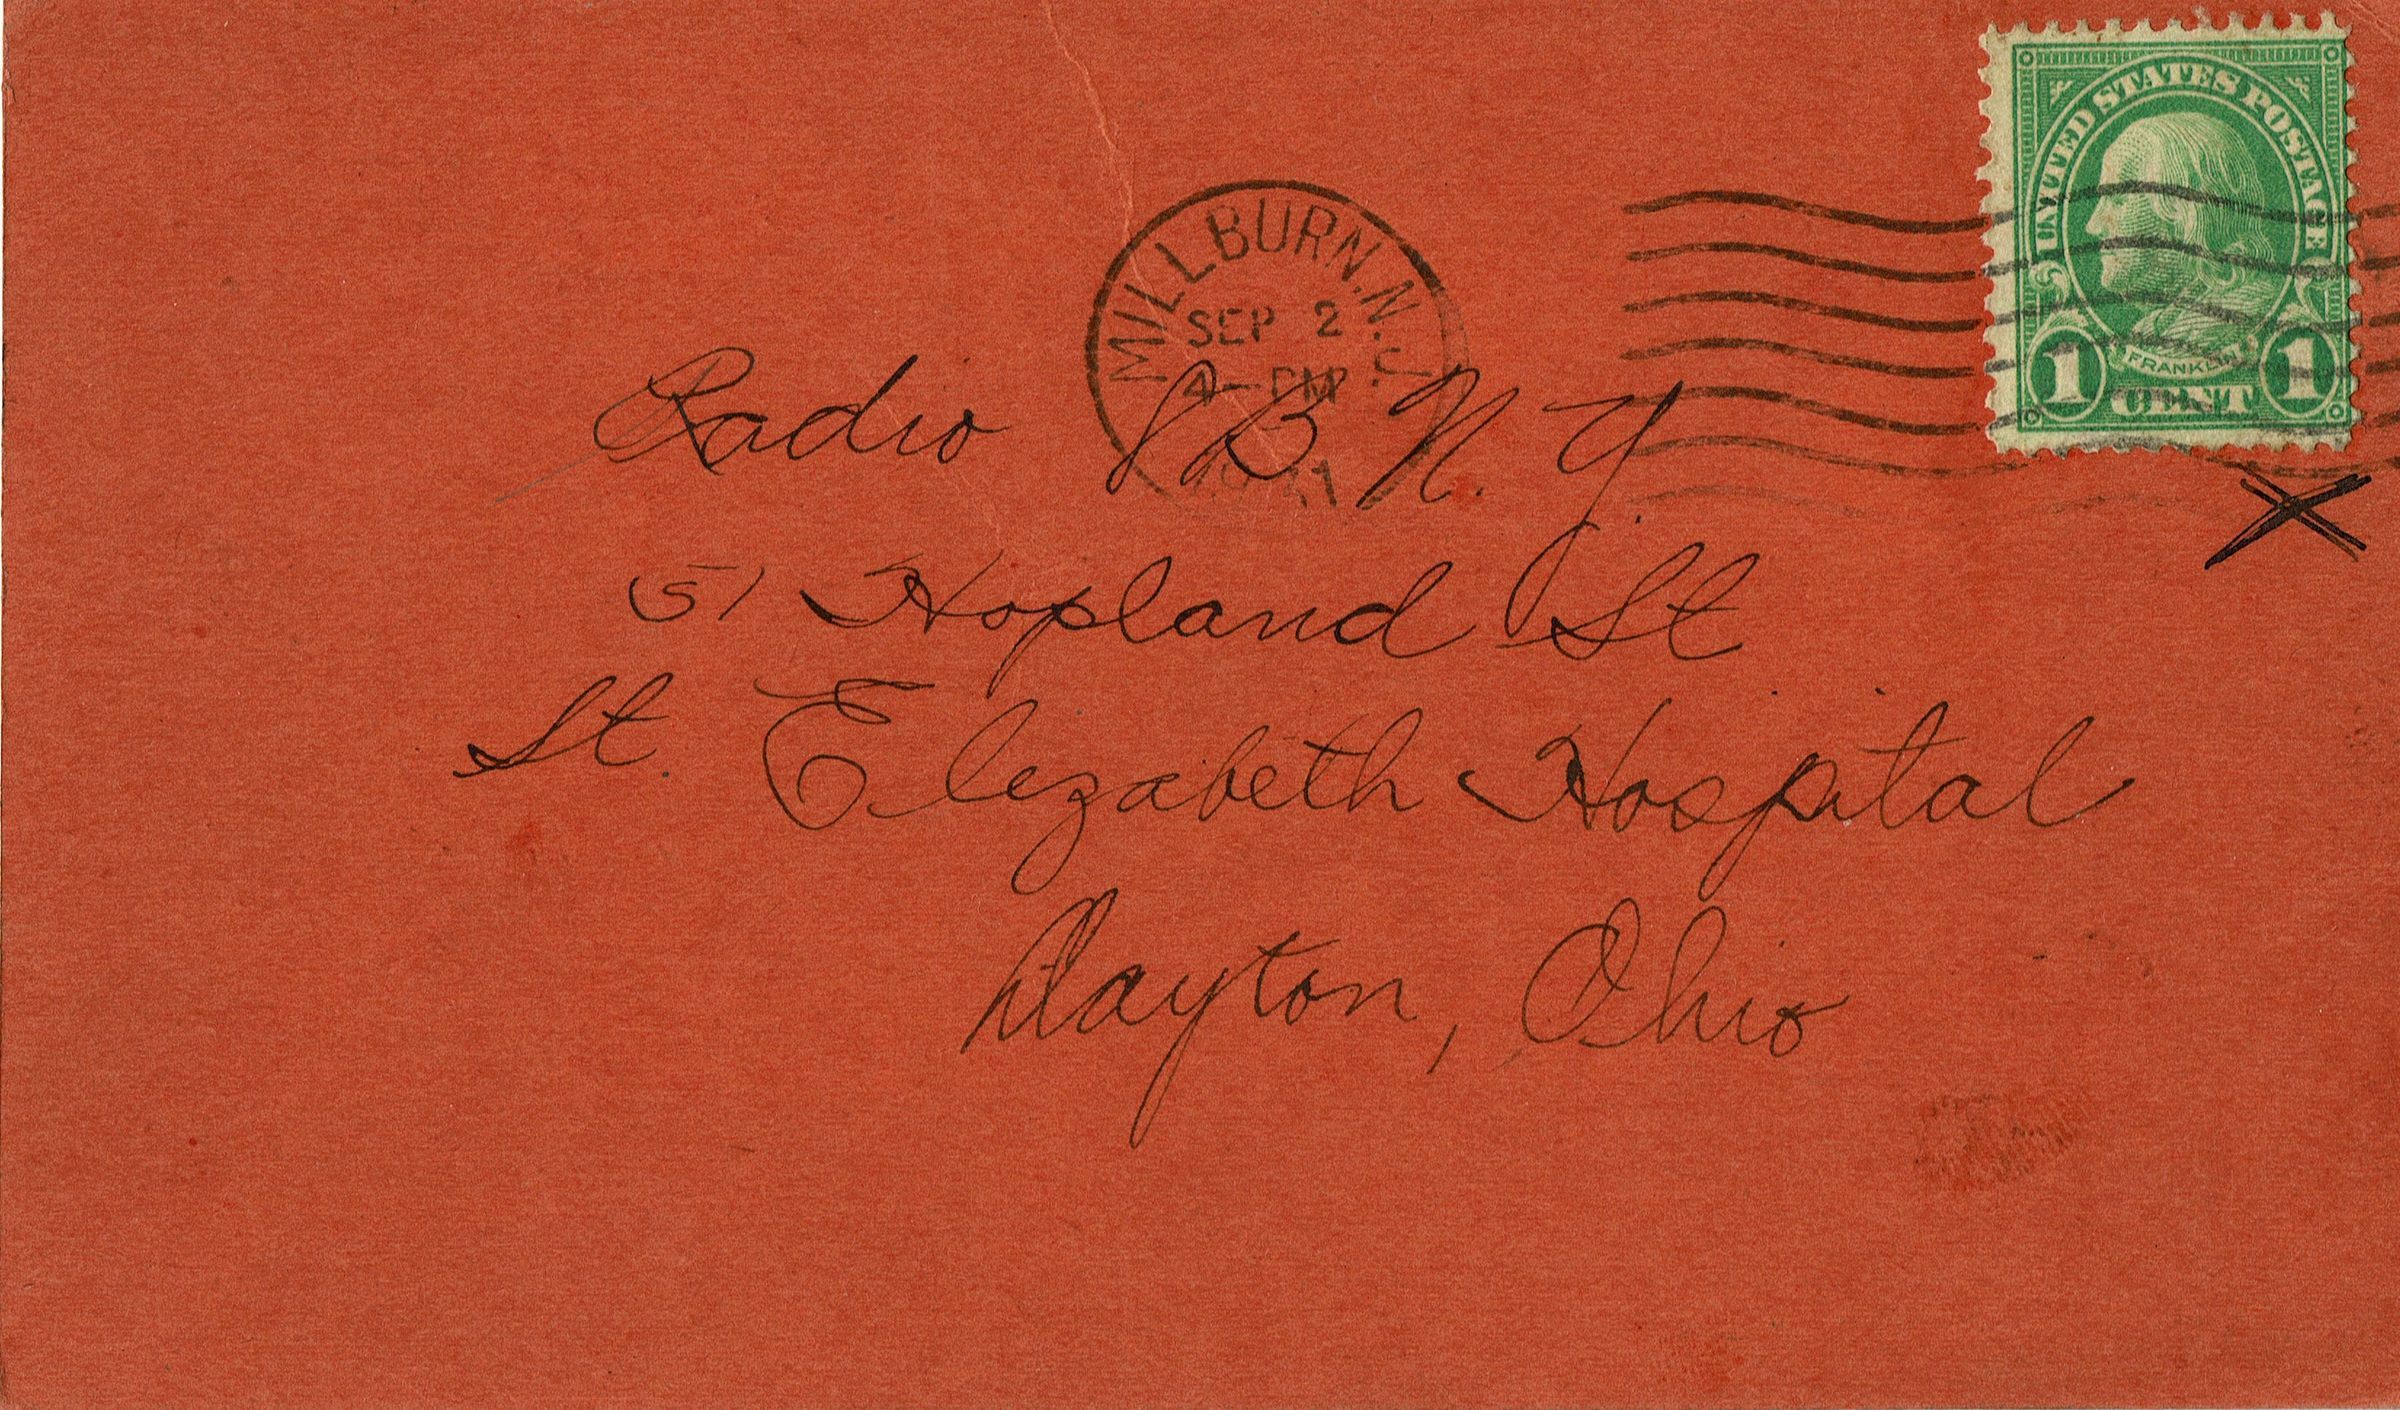 UNITED STATES POSTAGE
FRANKLIN
1 CENT 1
MILLBURN. N. J.
SEP 2
4-PM
Radio 8 B N. Y.
51 Hopland St
St. Elizabeth Hospital
Dayton, Ohio